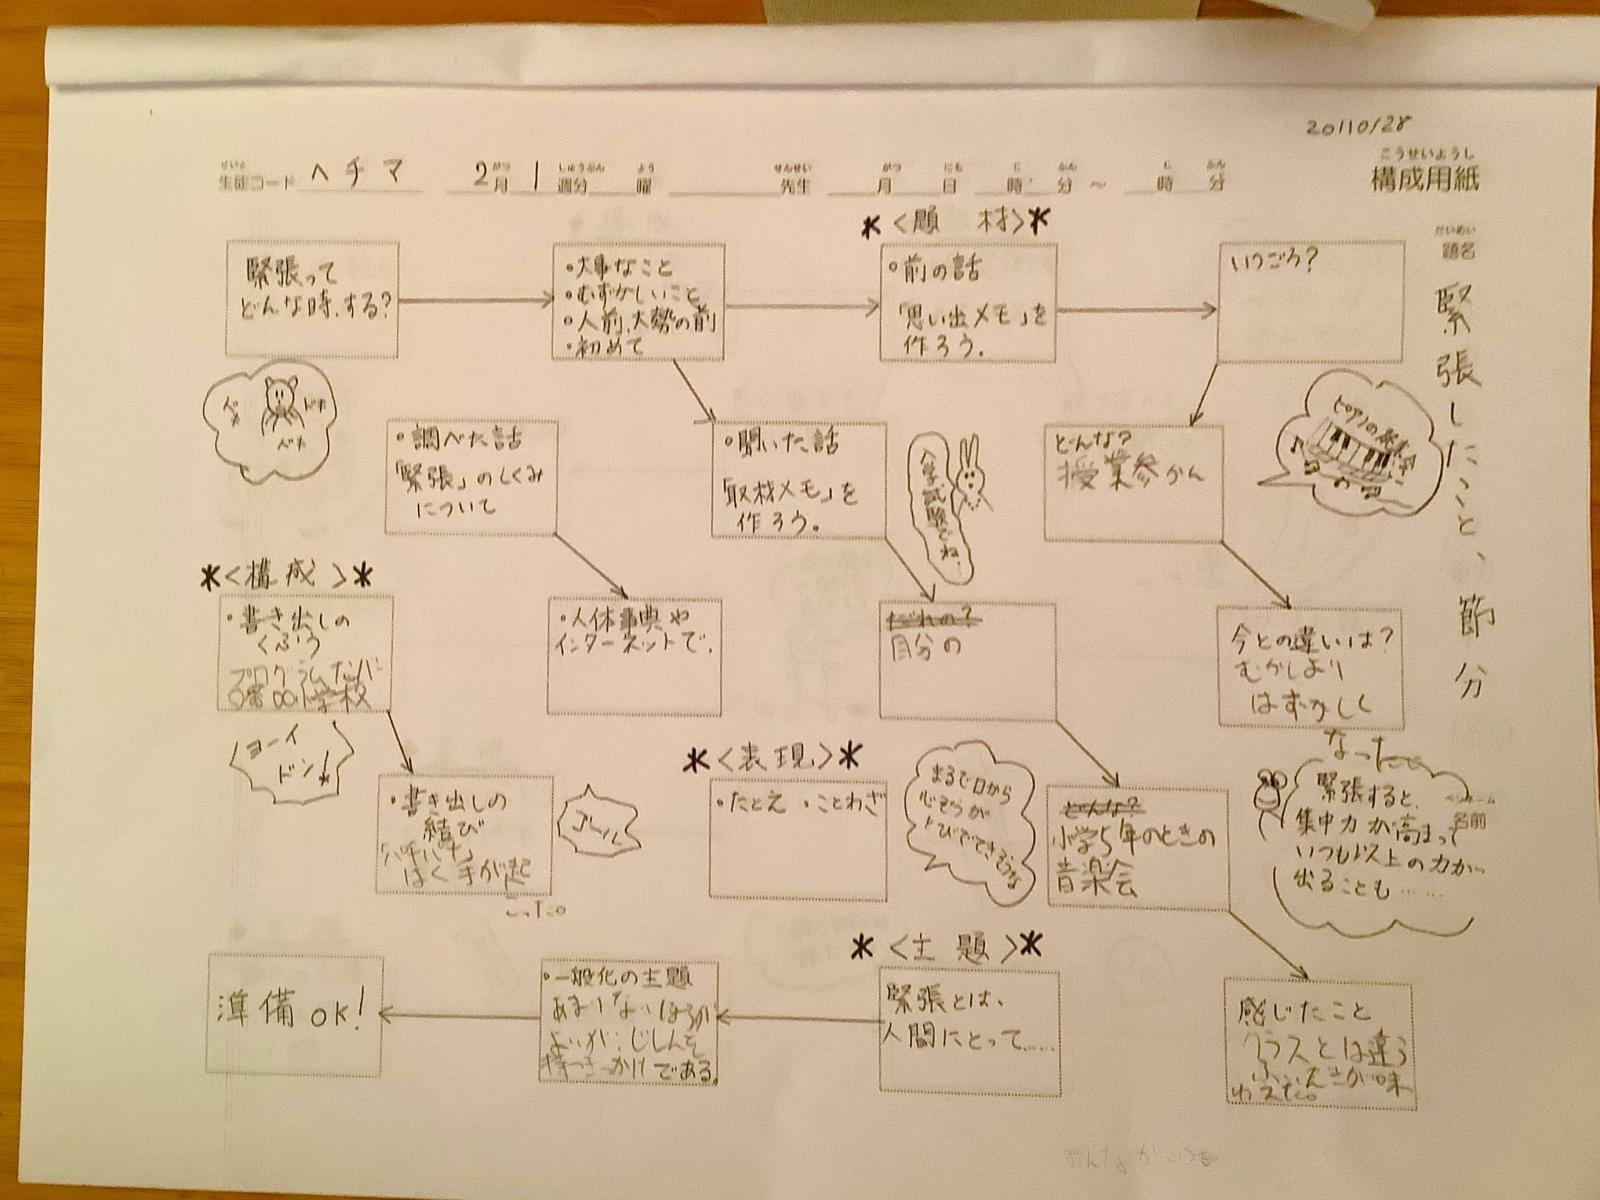 20110128
せいと がつ しゅうぶん よう せんせい がつ にち じ ふん じ ふん こうせいようし
生徒コード ヘチマ 2月 1週分 曜 先生 月 日 時 分 ～ 時 分 構成用紙
だいめい
題名
緊張したこと、節分
名前
緊張って
どんな時、する？
・大事なこと
・むずかしいこと
・人前、大勢の前
・初めて
＊＜題材＞＊
・前の話
「思い出メモ」を
作ろう.
いつごろ？
ドキ
ドキ
・調べた話
「緊張」のしくみ
について
・聞いた話
「取材メモ」を
作ろう。
入学試験でね…
どんな？
授業参かん
ピアノの発表会
＊＜構成＞＊
・書き出しの
くふう
小学校
ヨーイ
ドン!
・人体事典や
インターネットで.
だれの？
自分の
今との違いは？
むかしより
はずかしく
なった。
・書き出しの
結び
ゴール
＊＜表現＞＊
・たとえ ・ことわざ
まるで口から
心ぞうが
とびでてきそうな
どんな？
小学5年のときの
音楽会
緊張すると、
集中力が高まって
いつも以上の力が
出ることも……
準備OK！
・一般化の主題
あまりないほうが
よいが、じしんを
持つきっかけである。
＊＜主題＞＊
緊張とは、
人間にとって……
感じたこと
クラスとは違う
ふんいきが味
わえた。